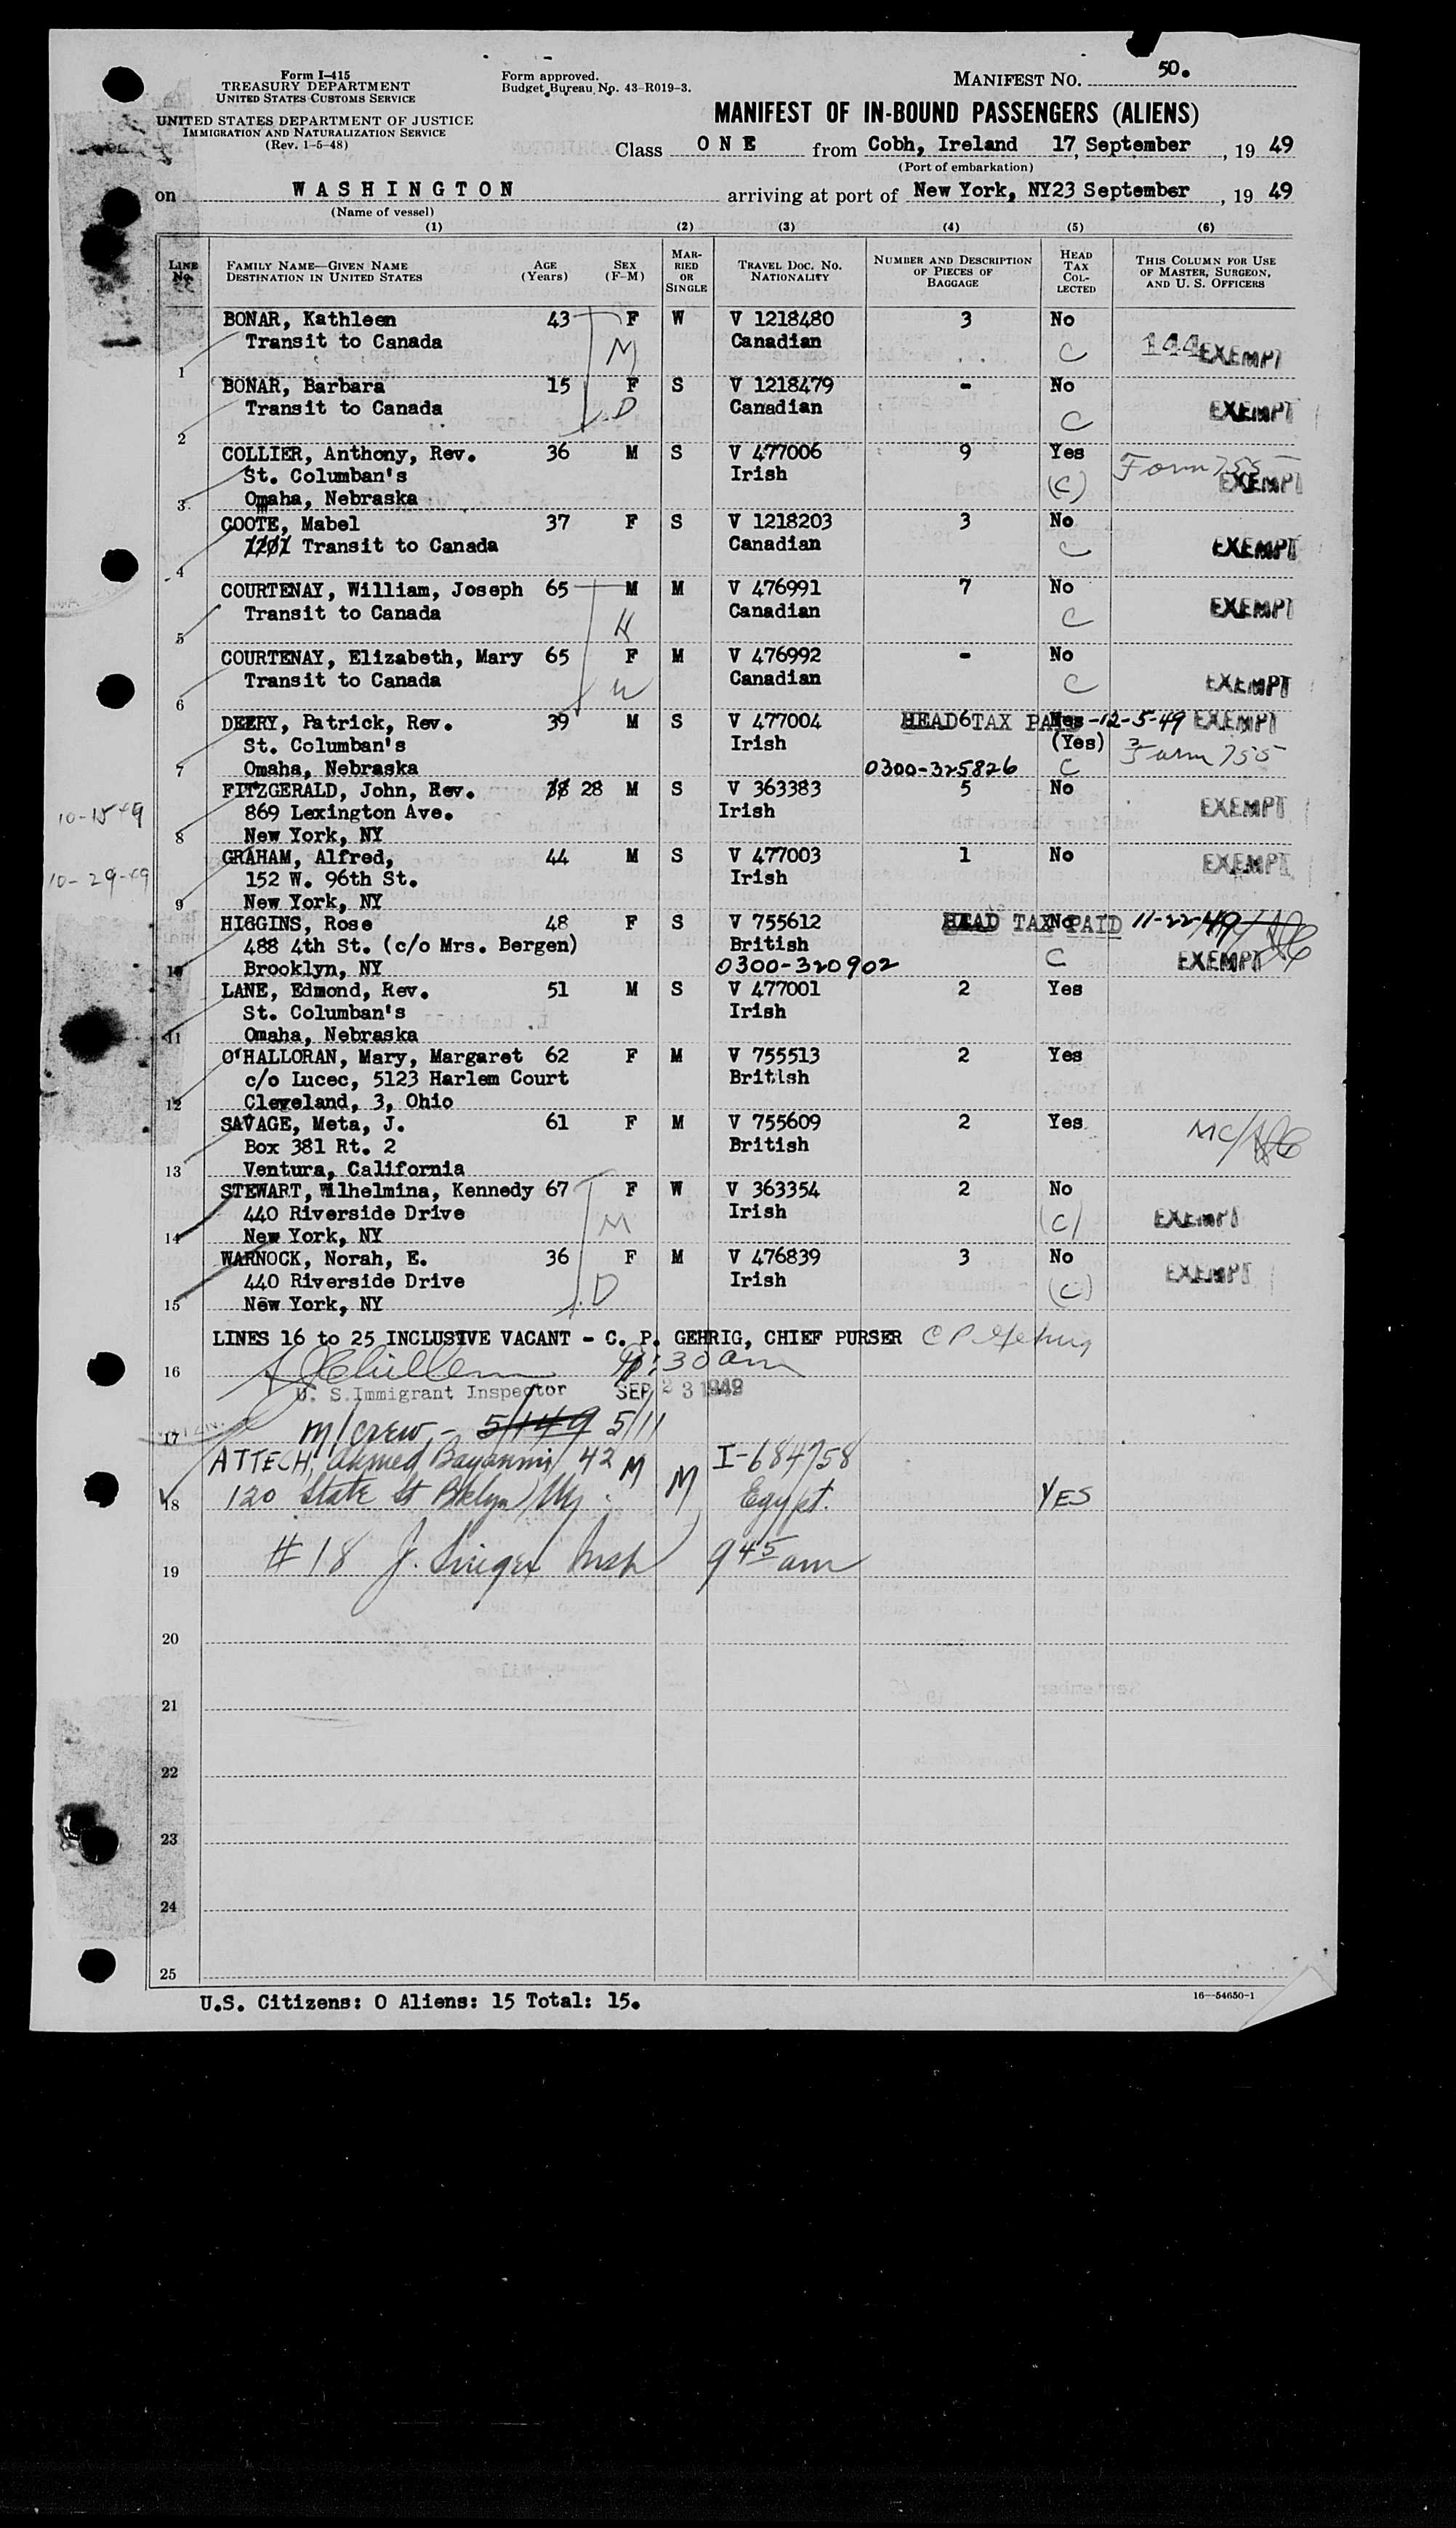 Form I-415
TREASURY DEPARTMENT
UNITED STATES CUSTOMS SERVICE
UNITED STATES DEPARTMENT OF JUSTICE
IMMIGRATION AND NATURALIZATION SERVICE
(Rev. 1-5-48)
Form approved.
Budget Bureau No. 43-R019-3.
MANIFEST NO. 50.
MANIFEST OF IN-BOUND PASSENGERS (ALIENS)
Class O N E from Cobh, Ireland 17, September, 19 49
(Port of embarkation)
on W A S H I N G T O N arriving at port of New York, NY23 September, 19 49
(Name of vessel)
(1) (2) (3) (4) (5) (6)
LINE No. FAMILY NAME—GIVEN NAME DESTINATION IN UNITED STATES AGE (Years) SEX (F-M) MARRIED OR SINGLE TRAVEL DOC. NO. NATIONALITY NUMBER AND DESCRIPTION OF PIECES OF BAGGAGE HEAD TAX COLLECTED THIS COLUMN FOR USE OF MASTER, SURGEON, AND U. S. OFFICERS
BONAR, Kathleen 43 F W V 1218480 3 No
Transit to Canada M Canadian C 144 EXEMPT
1
BONAR, Barbara 15 F S V 1218479 - No
Transit to Canada D Canadian C EXEMPT
2
COLLIER, Anthony, Rev. 36 M S V 477006 9 Yes Form 755
St. Columban's Irish (C) EXEMPT
3 Omaha, Nebraska
COOTE, Mabel 37 F S V 1218203 3 No
1201 Transit to Canada Canadian C EXEMPT
4
COURTENAY, William, Joseph 65 M M V 476991 7 No
Transit to Canada H Canadian C EXEMPT
5
COURTENAY, Elizabeth, Mary 65 F M V 476992 - No
Transit to Canada W Canadian C EXEMPT
6
DEERY, Patrick, Rev. 39 M S V 477004 HEAD 6 TAX PAID Yes -12-5-49 EXEMPT
St. Columban's Irish (Yes) Form 755
7 Omaha, Nebraska 0300-325826 C
FITZGERALD, John, Rev. 28 M S V 363383 5 No
10-15-49 869 Lexington Ave. Irish EXEMPT
8 New York, NY
GRAHAM, Alfred, 44 M S V 477003 1 No
10-29-49 152 W. 96th St. Irish EXEMPT
9 New York, NY
HIGGINS, Rose 48 F S V 755612 HEAD TAX PAID No 11-22-49
488 4th St. (c/o Mrs. Bergen) British
10 Brooklyn, NY 0300-320902 C EXEMPT
LANE, Edmond, Rev. 51 M S V 477001 2 Yes
St. Columban's Irish
11 Omaha, Nebraska
O'HALLORAN, Mary, Margaret 62 F M V 755513 2 Yes
c/o Lucec, 5123 Harlem Court British
12 Cleveland, 3, Ohio
SAVAGE, Meta, J. 61 F M V 755609 2 Yes MC/
Box 381 Rt. 2 British
13 Ventura, California
STEWART, Wilhelmina, Kennedy 67 F W V 363354 2 No
440 Riverside Drive M Irish (C) EXEMPT
14 New York, NY
WARNOCK, Norah, E. 36 F M V 476839 3 No
440 Riverside Drive D Irish (C) EXEMPT
15 New York, NY
LINES 16 to 25 INCLUSIVE VACANT - C. P. GEHRIG, CHIEF PURSER C P Gehrig
16 :30 am
U. S. Immigrant Inspector SEP 23 1949
17 m/crew - 5/149 5/11
ATTECH, Ahmed Bayoumi 42 M M I-684758
18 120 State St Bklyn, NY Egypt. YES
# 18 J. Singer Insp 9 45 am
19
20
21
22
23
24
25
U.S. Citizens: 0 Aliens: 15 Total: 15.
16—54650-1